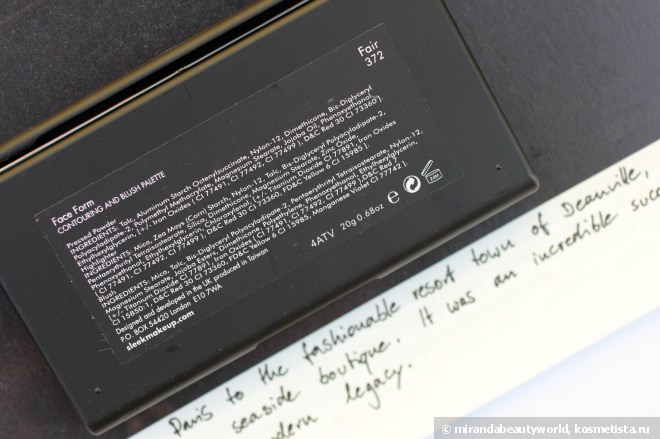 Fair
372
Face Form
CONTOURING AND BLUSH PALETTE
Pressed Powder
INGREDIENTS: Talc, Aluminum Starch Octenylsuccinate, Nylon-12, Dimethicone, Bis-Diglyceryl
Polyacyladipate-2, Polymethyl Methacrylate, Magnesium Stearate, Jojoba Oil, Phenoxyethanol,
Ethylhexylglycerin, [+/- Iron Oxides ( CI 77491, CI 77492, CI 77499 ), D&C Red 30 CI 73360 ].
Highlighter
INGREDIENTS: Mica, Zea Mays (Corn) Starch, Nylon-12, Talc, Bis-Diglyceryl Polyacyladipate-2,
Pentaerythrityl Tetraisostearate, Silica, Dimethicone, Magnesium Stearate, Zinc Oxide
( CI 77491, CI 77492, CI 77499 ), Titanium Dioxide CI 77891, Iron Oxides
Blush
INGREDIENTS: Mica, Talc, Bis-Diglyceryl Polyacyladipate-2, Pentaerythrityl Tetraisostearate, Nylon-12,
Magnesium Stearate, Jojoba Esters, Dimethicone, Polyethylene, Phenoxyethanol, Ethylhexylglycerin,
[+/- Titanium Dioxide CI 77891, Iron Oxides ( CI 77491, CI 77492, CI 77499 ), D&C Red 7
CI 15850:1, D&C Red 30 CI 73360, FD&C Yellow 6 CI 15985, Manganese Violet CI 77742 ].
Designed and developed in the UK produced in Taiwan
P.O. BOX 54420 London
E10 7WA
sleekmakeup.com
4ATV 20g 0.68oz
Paris to the fashionable resort town of Deauville,
seaside boutique. It was an incredible succ
dern legacy.
© mirandabeautyworld, kosmetista.ru